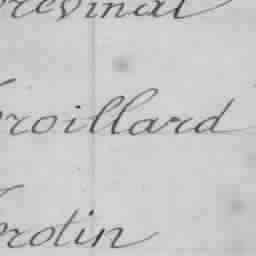 revinal
roillard
rotin